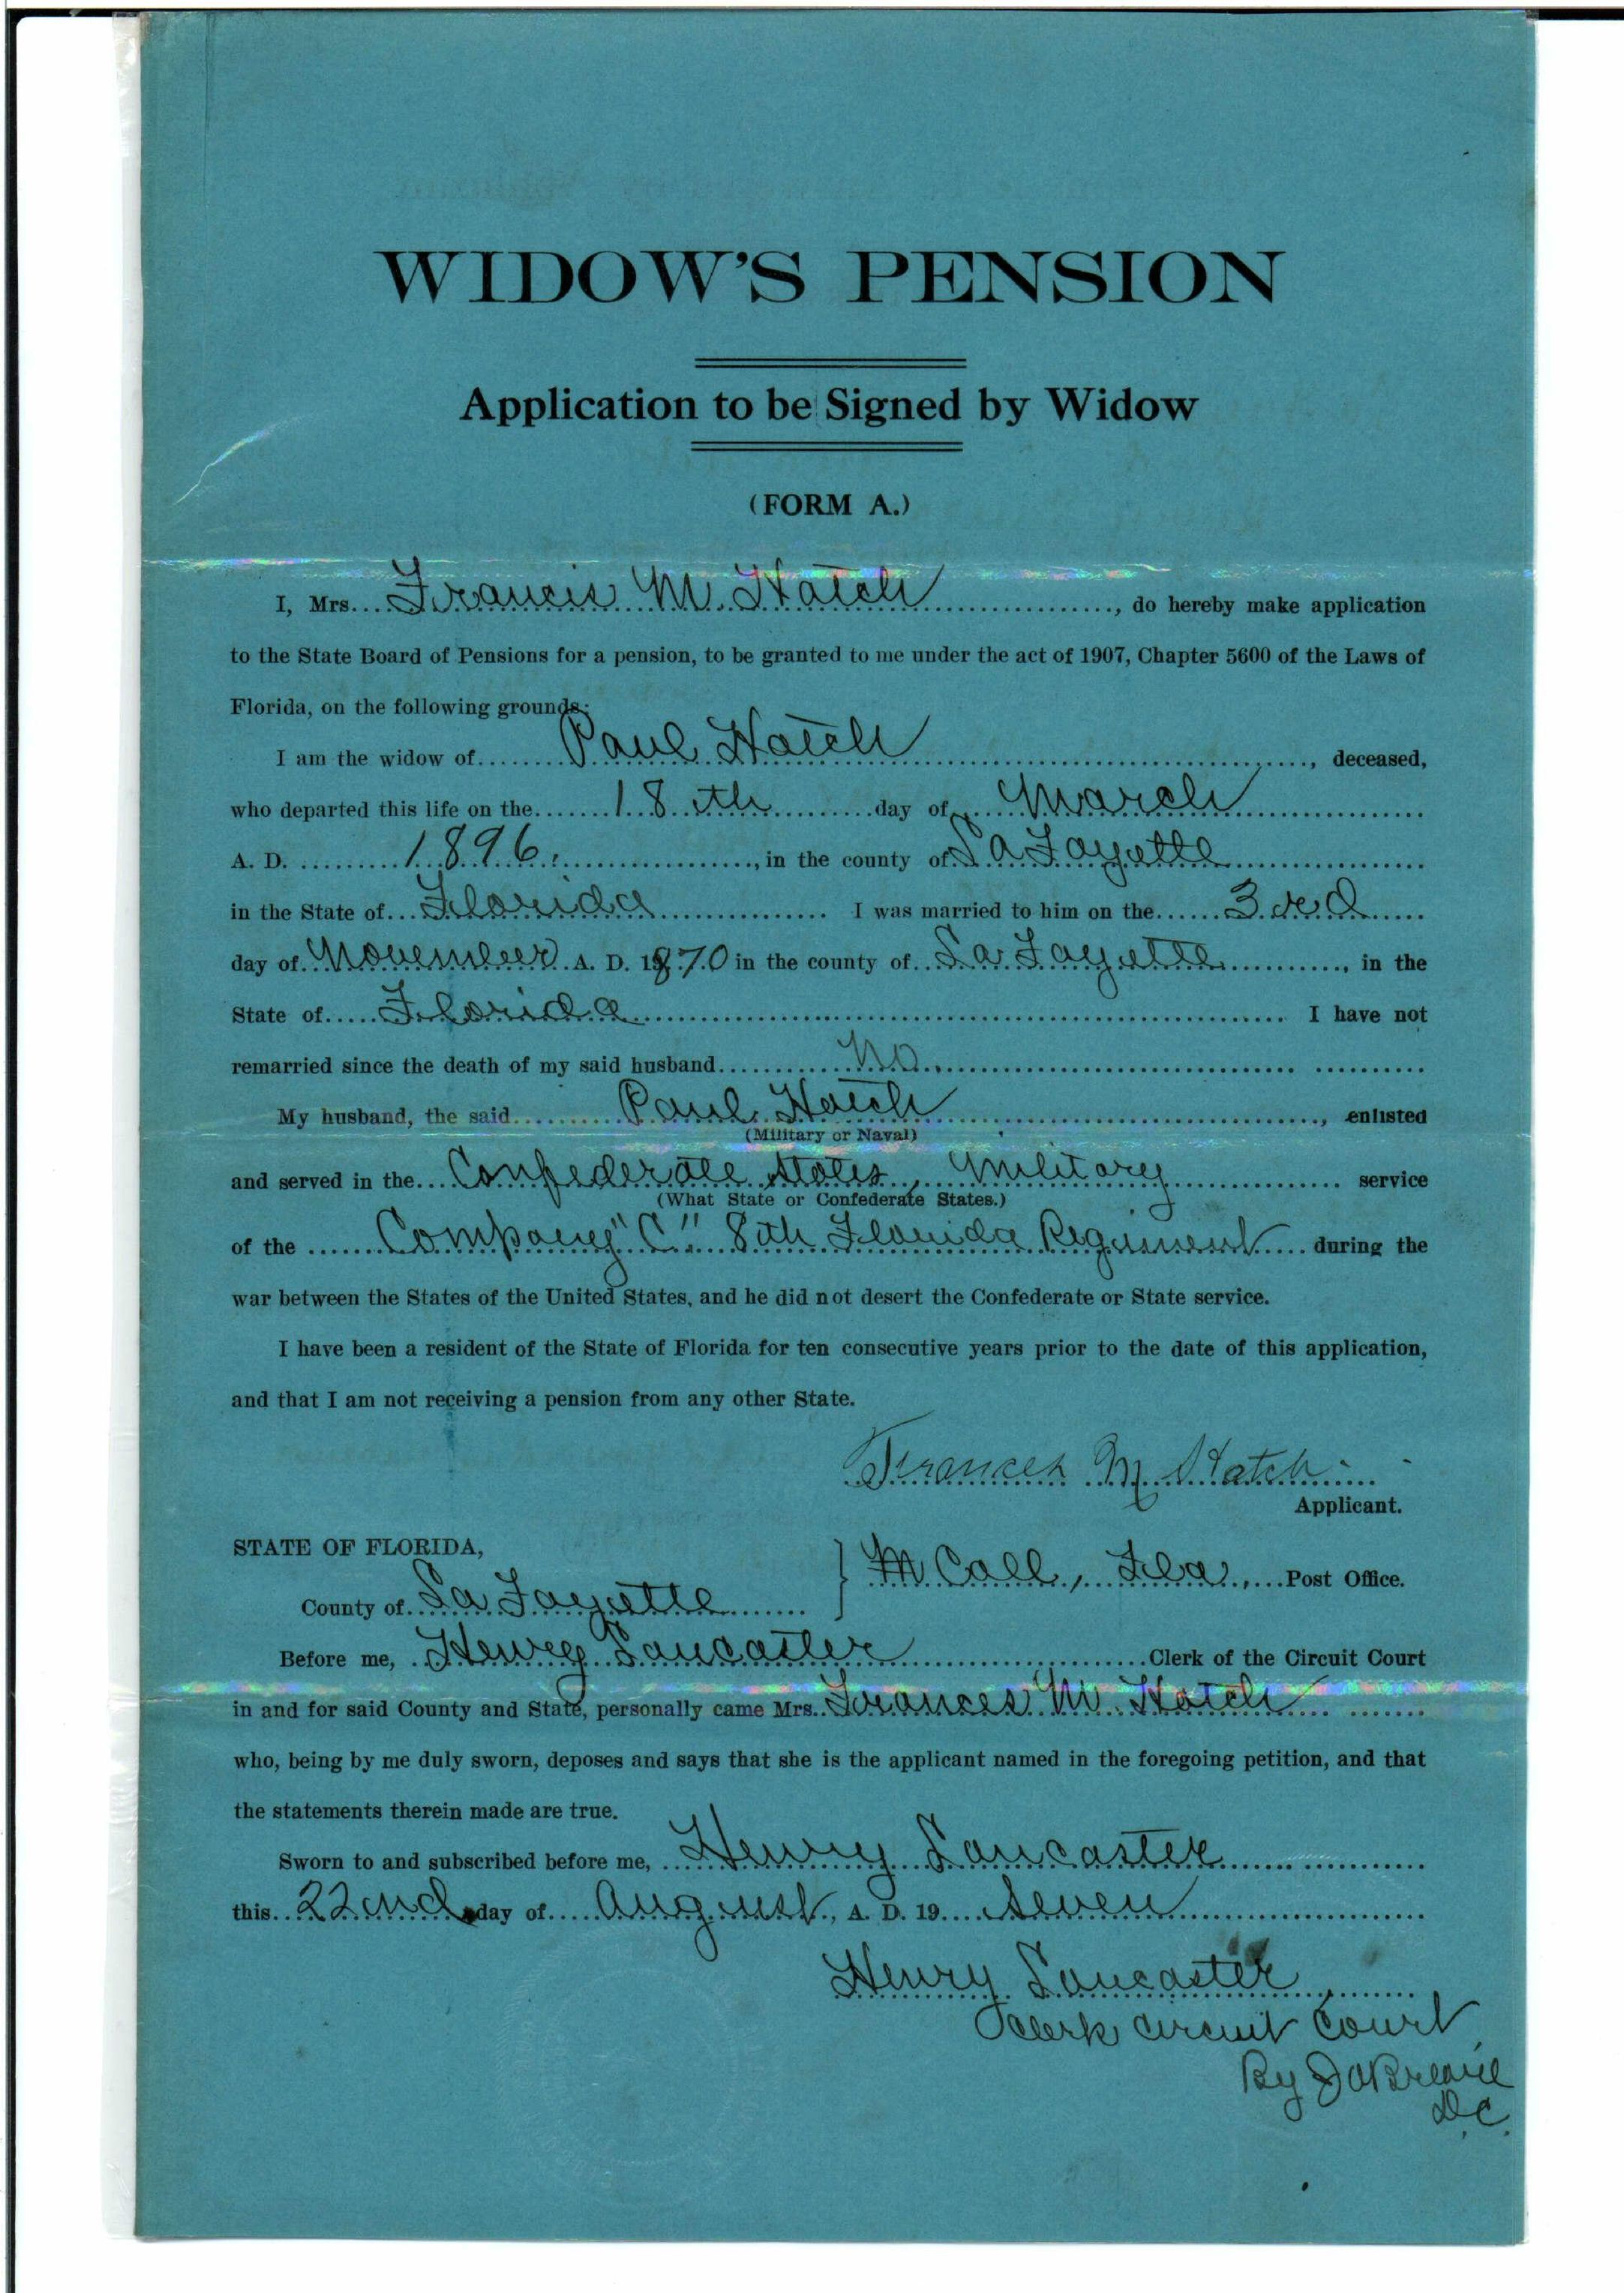 WIDOW'S PENSION
Application to be Signed by Widow
(FORM A.)
I, Mrs. Francis M. Hatch, do hereby make application
to the State Board of Pensions for a pension, to be granted to me under the act of 1907, Chapter 5600 of the Laws of
Florida, on the following grounds:
I am the widow of Paul Hatch, deceased,
who departed this life on the 18th day of March
A. D. 1896, in the county of LaFayette
in the State of Florida I was married to him on the 3rd
day of November A. D. 1870 in the county of LaFayette, in the
State of Florida I have not
remarried since the death of my said husband No.
My husband, the said Paul Hatch, enlisted
(Military or Naval)
and served in the Confederate States, Military service
(What State or Confederate States.)
of the Company "C" 8th Florida Regiment during the
war between the States of the United States, and he did not desert the Confederate or State service.
I have been a resident of the State of Florida for ten consecutive years prior to the date of this application,
and that I am not receiving a pension from any other State.
Frances M Hatch
Applicant.
STATE OF FLORIDA,
McCall, Fla, Post Office.
County of LaFayette
Before me, Henry Lancaster Clerk of the Circuit Court
in and for said County and State, personally came Mrs. Frances M. Hatch
who, being by me duly sworn, deposes and says that she is the applicant named in the foregoing petition, and that
the statements therein made are true.
Sworn to and subscribed before me, Henry Lancaster
this 22nd day of August, A. D. 19 Seven
Henry Lancaster
Clerk Circuit Court
By
D.C.